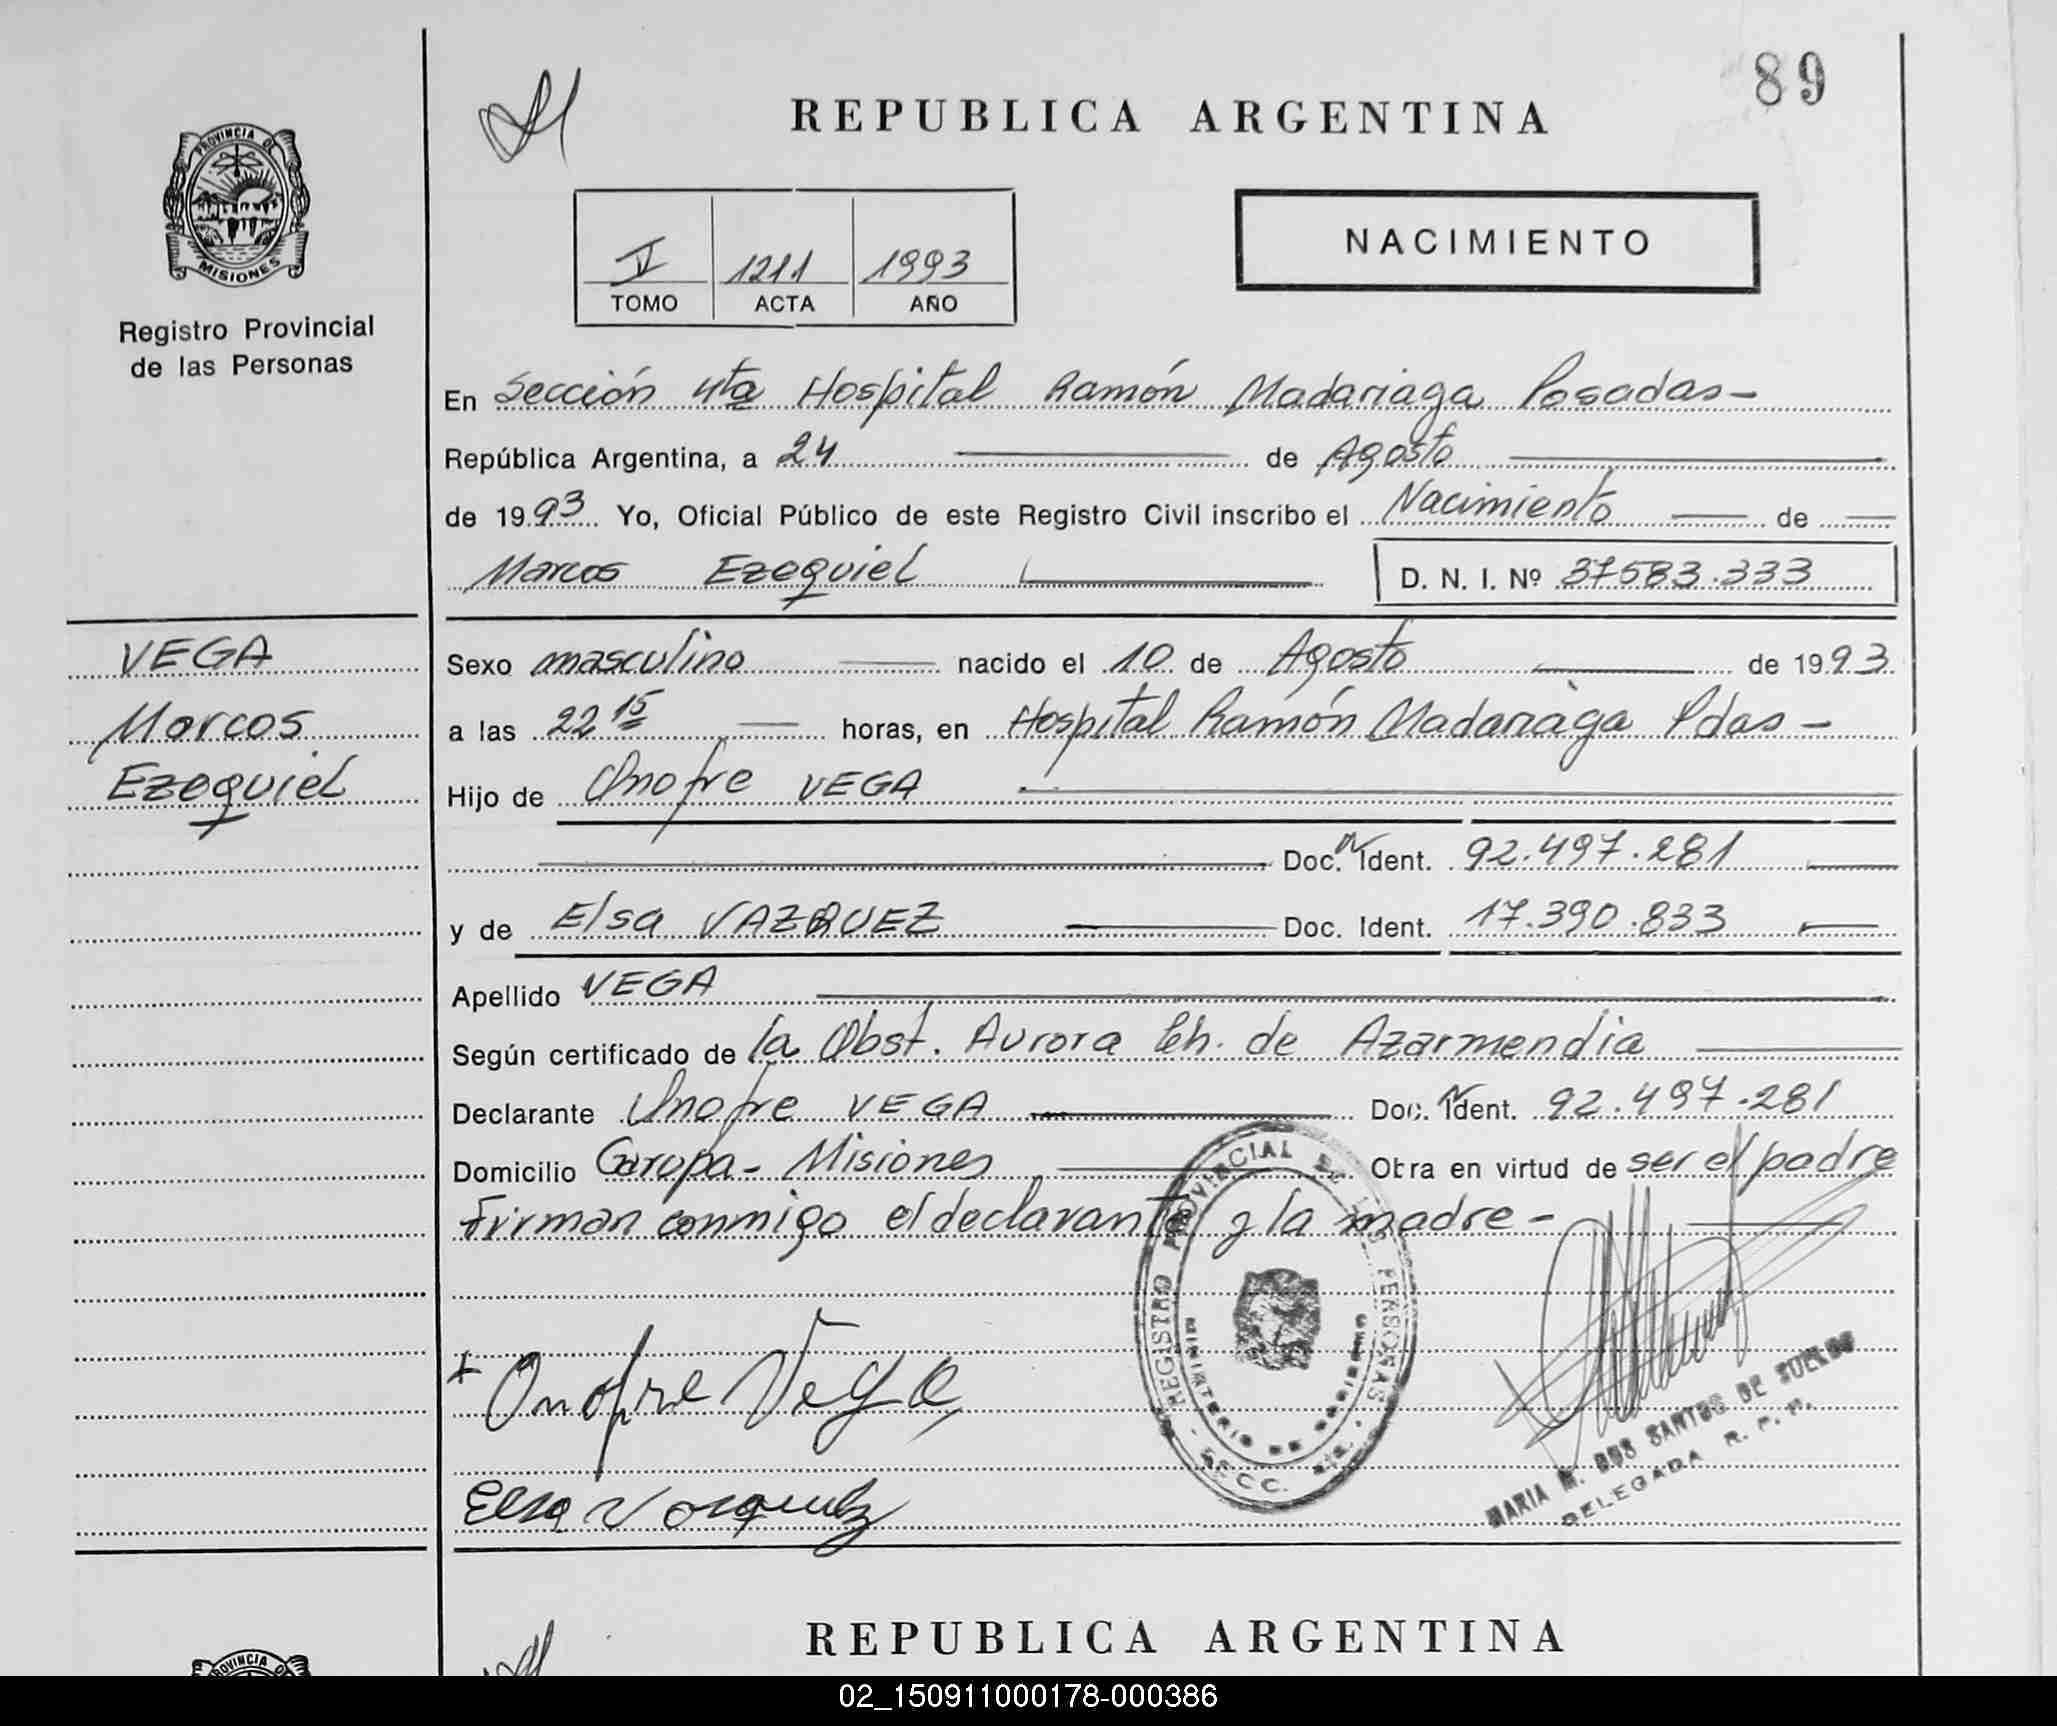 89
REPUBLICA ARGENTINA
PROVINCIA DE
MISIONES
Registro Provincial
de las Personas
V 1211 1993
TOMO ACTA AÑO
NACIMIENTO
En Sección 4ta Hospital Ramón Madariaga Posadas-
República Argentina, a 24 de Agosto
de 1993 Yo, Oficial Público de este Registro Civil inscribo el Nacimiento de
Marcos Ezequiel D. N. I. Nº 37583.333
VEGA
Marcos
Ezequiel
Sexo masculino nacido el 10 de Agosto de 1993
a las 22 15 horas, en Hospital Ramón Madariaga Pdas-
Hijo de Onofre VEGA
Doc. Ident. 92.497.281
y de Elsa VAZQUEZ Doc. Ident. 17.390.833
Apellido VEGA
Según certificado de la Obst. Aurora Ch. de Azarmendia
Declarante Onofre VEGA Doc. Ident. 92.497.281
Domicilio Garupa- Misiones Obra en virtud de ser el padre
Firman conmigo el declarante y la madre-
REGISTRO PROVINCIAL DE LAS PERSONAS
MINISTERIO DE GOBIERNO
SECC. 4ta.
Onofre Vega
Elsa Vazquez
MARIA M. DOS SANTOS DE SUELDO
DELEGADA R. P. P.
REPUBLICA ARGENTINA
PROVINCIA DE
02_150911000178-000386